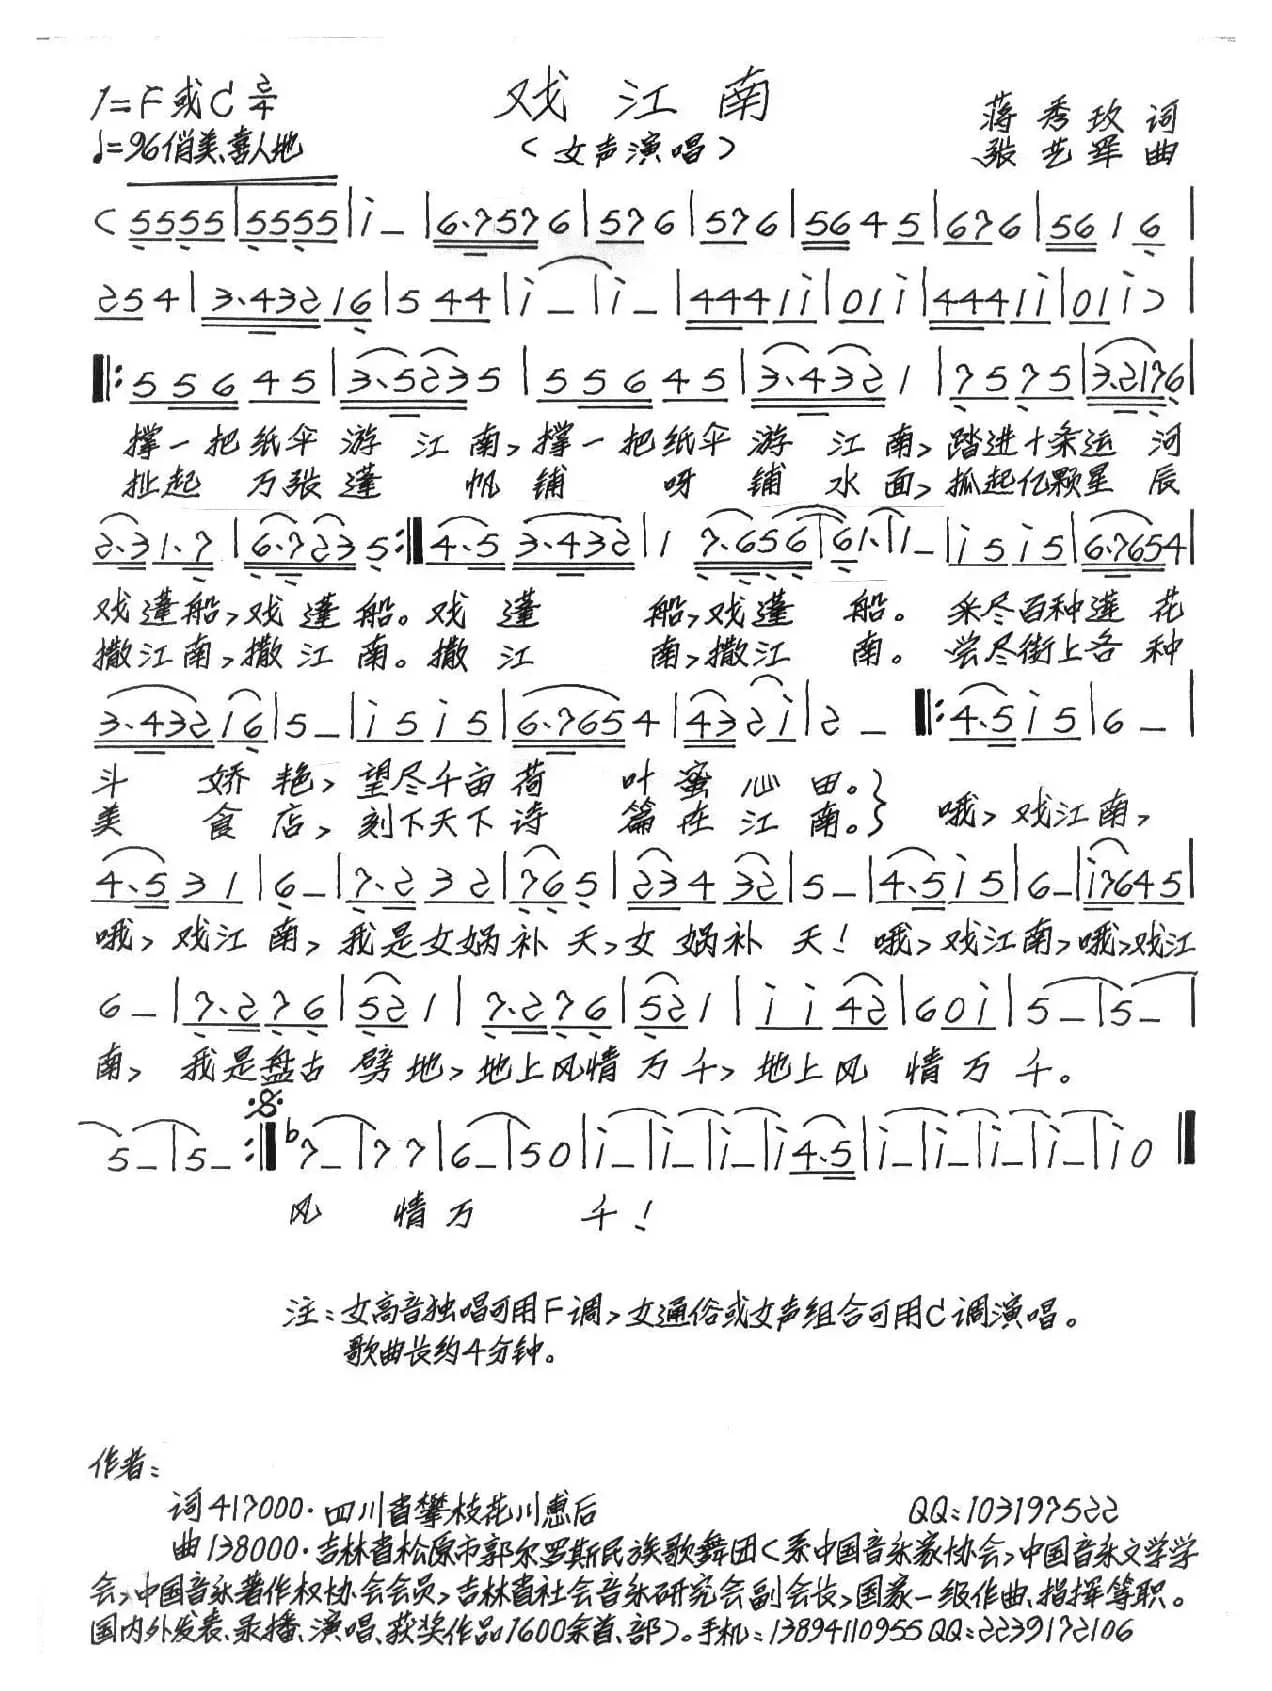 戏江南
1=F或C 2/4
♩=96俏美、喜人地
(女声演唱)
蒋秀玫 词
张艺军 曲
(5555|5555|i－|6·7576|576|576|5645|676|5616|
254|3·43216|544|i－|i－|44411i|01i|44411i|01i)|
‖:55645|3·5235|55645|3·4321|7575|3·2176|
撑一把纸伞游江南,撑一把纸伞游江南,踏进十条运河
扯起万张蓬帆铺呀铺水面,抓起亿颗星辰
2·31·7|6·7235:‖4·53·432|1 7·656|61·|1－|i5i5|6·7654|
戏蓬船,戏蓬船。戏蓬船,戏蓬船。采尽百种莲花
撒江南,撒江南。撒江南,撒江南。尝尽街上各种
3·43216|5－|i5i5|6·7654|432i|2－‖:4·5i5|6－|
斗娇艳,望尽千亩荷叶蜜心田。}
美食店,刻下天下诗篇在江南。} 哦,戏江南,
4·531|6－|7·232|765|23432|5－|4·5i5|6－|i7645|
哦,戏江南,我是女娲补天,女娲补天!哦,戏江南,哦,戏江
6－|7·276|521|7·276|521|ii42|60i|5－|5－|
南,我是盘古劈地,地上风情万千,地上风情万千。
5－|5－:‖♭7－|77|6－|50|i－|i－|i－|i4·5|i－|i－|i－|i－|i0‖
风情万千!
注:女高音独唱可用F调,女通俗或女声组合可用C调演唱。
歌曲长约4分钟。
作者:
词417000·四川省攀枝花川惠后 QQ:103197522
曲138000·吉林省松原市郭尔罗斯民族歌舞团(系中国音乐家协会,中国音乐文学学
会,中国音乐著作权协会会员,吉林省社会音乐研究会副会长,国家一级作曲、指挥等职。
国内外发表、录播、演唱、获奖作品1600余首、部)。手机:13894110955 QQ:2239172106